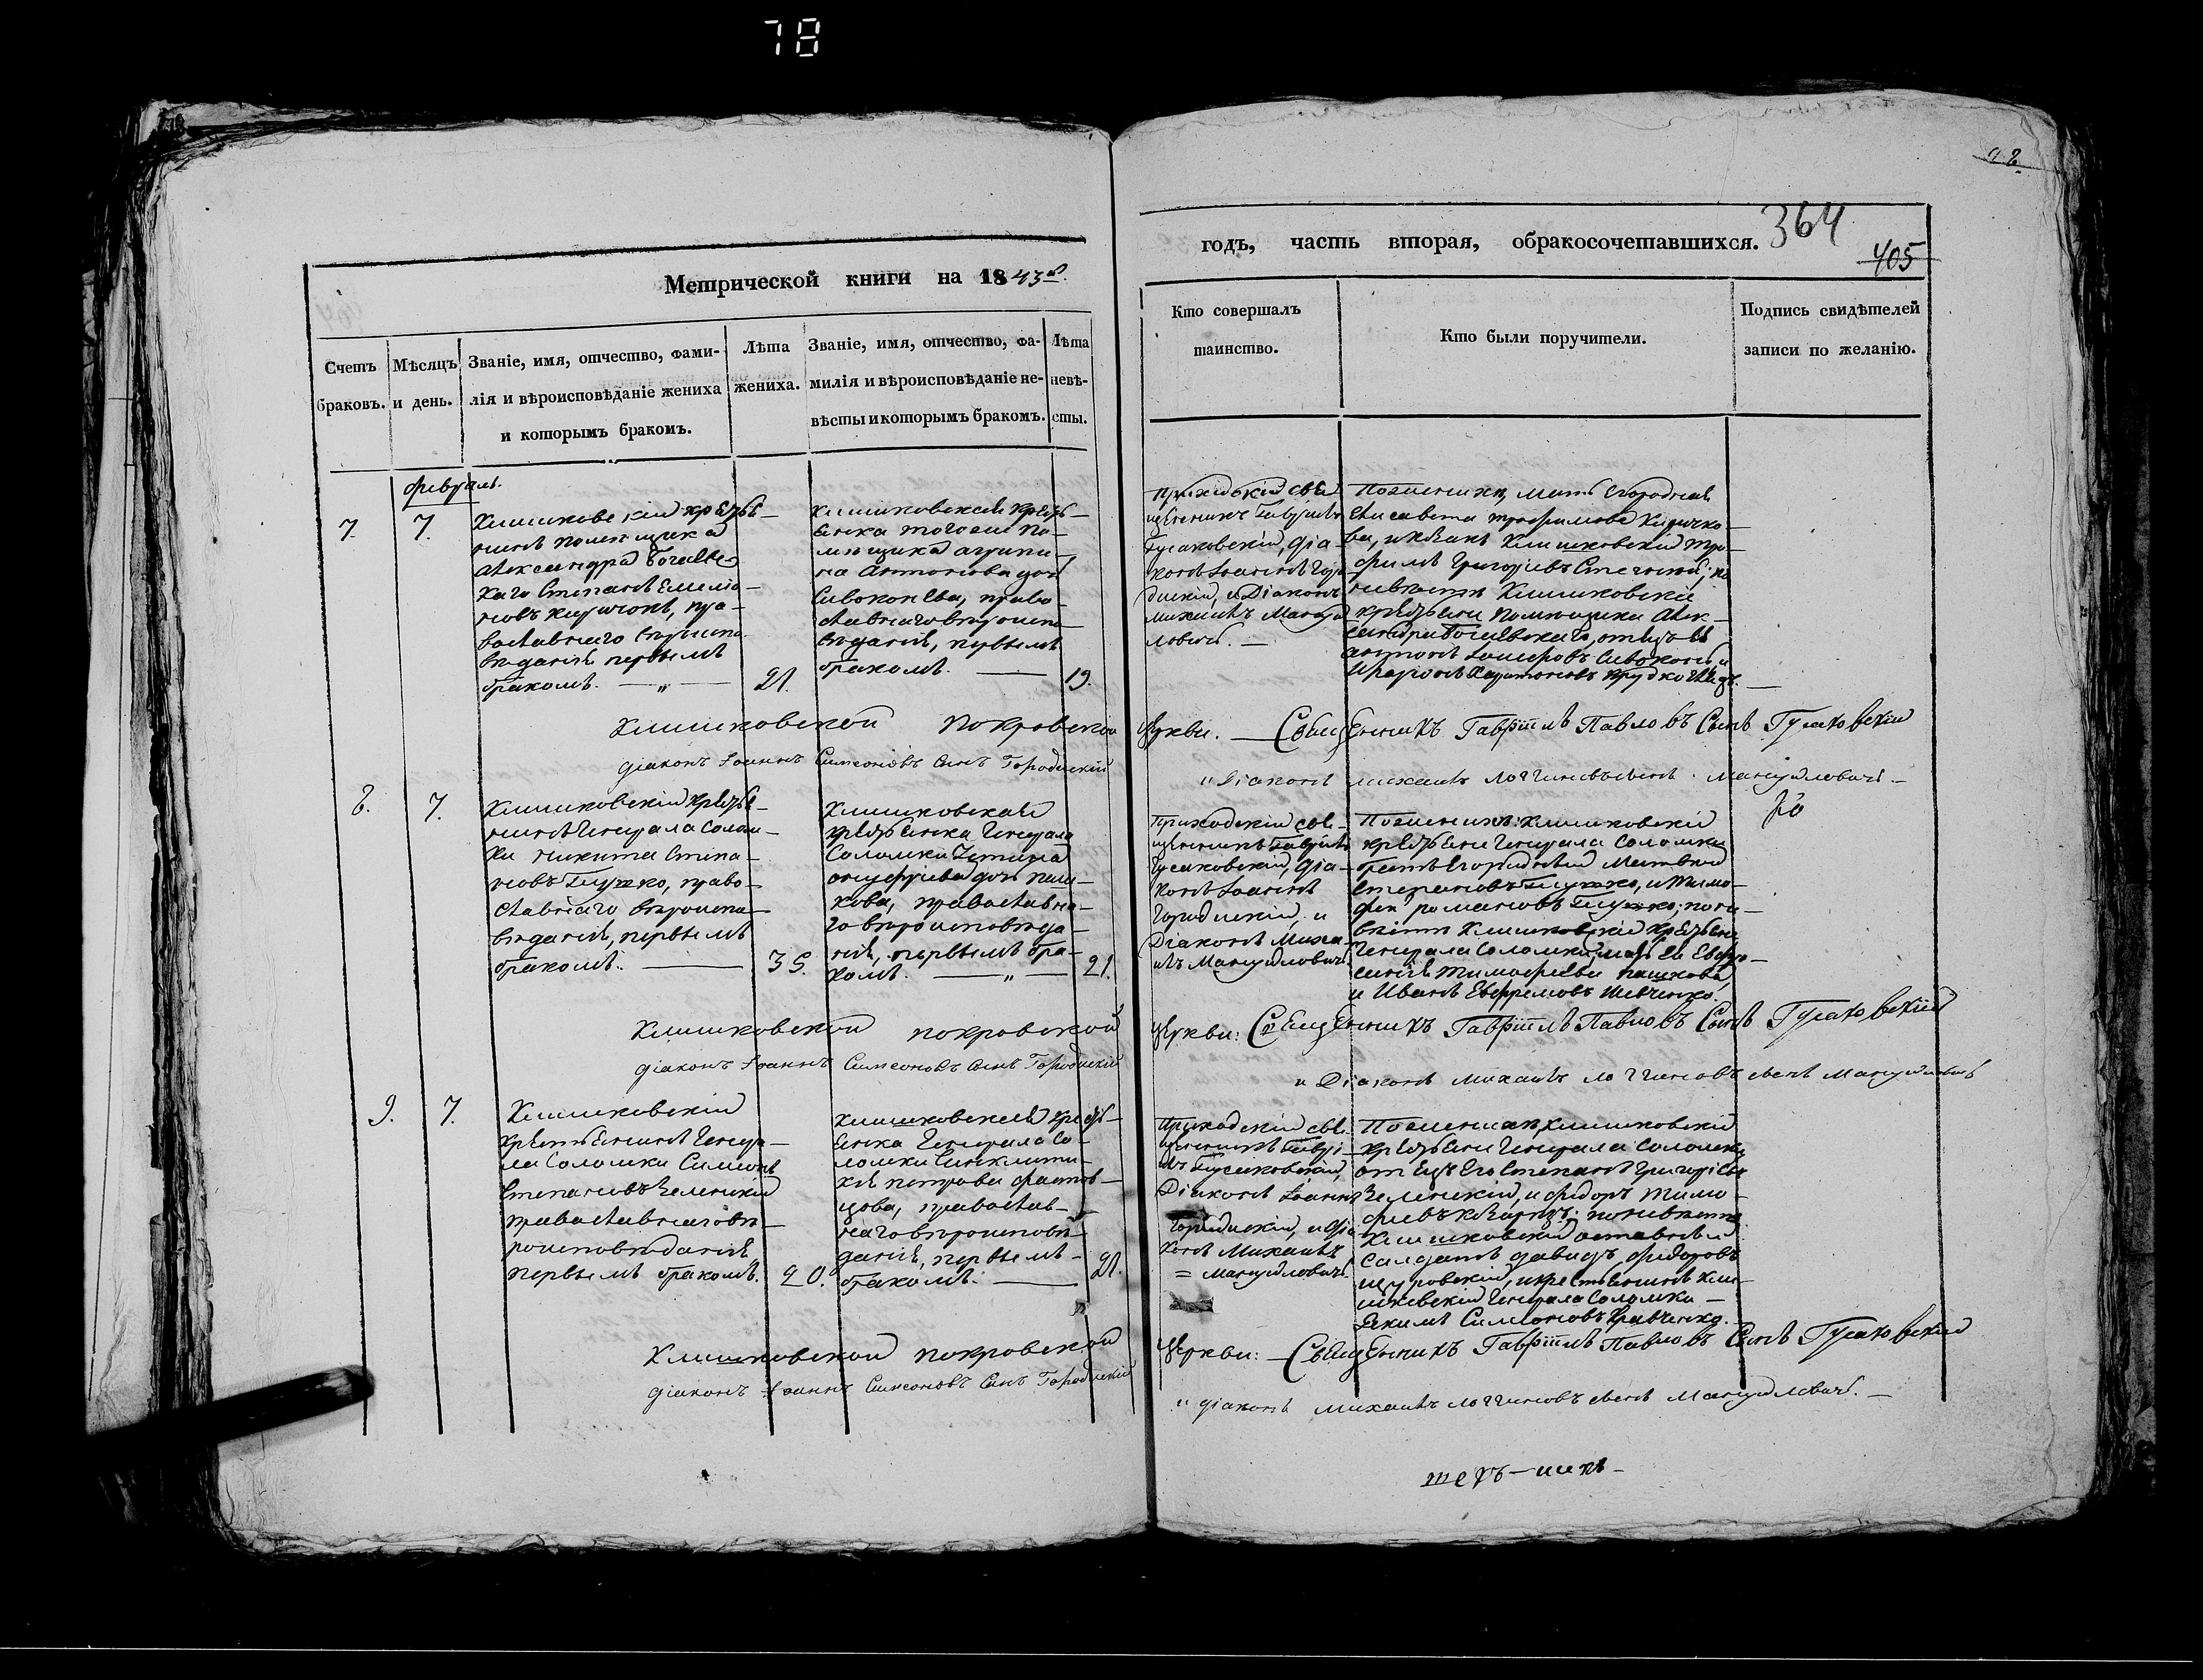 78
98
Метрической книги на 1843й
годъ, часть вторая, обракосочетавшихся. 364
405
Счетъ браковъ.
Мѣсяцъ и день.
Званіе, имя, отчество, фами-
лія и вѣроисповѣданіе жениха
и которымъ бракомъ.
Лѣта
жениха.
Званіе, имя, отчество, фа-
милія и вѣроисповѣданіе не-
вѣсты и которымъ бракомъ.
Лѣта
невѣ-
сты.
Кто совершалъ
таинство.
Кто были поручители.
Подпись свидѣтелей
записи по желанію.
февраль.
7. 7.
Клишковскій крестья-
нинъ помѣщика
Александра
каго Стпанъ Емелія-
новъ Киричокъ, пра-
вославнаго вѣроиспо-
вѣданія первымъ
бракомъ. — „ — 21.
Клишковская кресть-
янка тогоже по-
мѣщика Агрипи-
на Антонова дочь
Сивоконева, право-
славнаго вѣроиспо-
вѣданія, первымъ
бракомъ. — 19.
Приходскій свя-
щенникъ Гавріилъ
Гусаковскій, діа-
конъ Іоаннъ Горо-
дискій, и Діаконъ
Михаилъ Мануй-
ловичъ. —
По женихѣ, мать Его родная
Елисавета Трофимова Киричко-
ва, и козакъ Клишковскій Тро-
фимъ Григорьевъ по
невѣстѣ Клишковскіе
крестьяни помѣщика Алек-
сандра отецъ ея
Антонъ Сивоконь, и
Харитоновъ
Клишковской покровской церкви. — Священникъ Гавріилъ Павловъ Сынъ Гусаковскій
діаконъ Іоаннъ Симеоновъ Сынъ Городискій и Діаконъ михаилъ логгиновъ сынъ Мануйловичъ —
8. 7.
Клишковскій крестья-
нинъ Генерала Солом-
ки Никита Степа-
новъ Глушко, право-
славнаго вѣроиспо-
вѣданія, первымъ
бракомъ. — 35.
Клишковская
крестьянка Генерала
Соломки
Онуфріева дочь Паш-
кова, православна-
го вѣроисповѣда-
нія, первымъ бра-
комъ. — „ — 21.
Приходскій свя-
щенникъ Гавріилъ
Гусаковскій, діа-
конъ Іоаннъ
Городискій, и
Діаконъ Миха-
илъ Мануйловичъ.
По женихѣ: Клишковскіе
крестьяни Генерала Соломки
братъ Его родный Матвѣй
Степановъ Глушко, и Тимо-
фей Романовъ Глушко; по не-
вѣстѣ Клишковскіе крестьяне
Генерала Соломки, мать Ея Евфро-
синія Тимофеева Пашкова,
и Иванъ Евфремовъ Шевченко.
Клишковской покровской церкви: Священникъ Гавріилъ Павловъ Сынъ Гусаковскій
діаконъ Іоаннъ Симеоновъ Сынъ Городискій и Діаконъ михаилъ логгиновъ сынъ Мануйловичъ
9. 7.
Клишковскій
крестьянинъ Генера-
ла Соломки Симеонъ
Степановъ Зеленскій
православнаго вѣ-
роисповѣданія,
первымъ бракомъ. 20.
Клишковская кресть-
янка Генерала Со-
ломки Синклити-
кія Петрова
цова, православ-
наго вѣроисповѣ-
данія, первымъ
бракомъ. — 21.
Приходскій свя-
щенникъ Гаврі-
илъ Гусаковскій,
Діаконъ Іоаннъ
Городискій, и діа-
конъ Михаилъ
= Мануйловичъ.
По женихѣ, Клишковскіе
крестьяни Генерала Соломки
отецъ Его Степанъ Григорьевъ
Зеленскій, и Федоръ Тимо-
феевъ по невѣстѣ
Клишковскій отставный
Салдатъ Давидъ Федоровъ
и крестьянинъ Кли-
шковскій Генерала Соломки —
Якимъ Симоновъ Кравченко.
Клишковской покровской церкви: — Священникъ Гавріилъ Павловъ Сынъ Гусаковскій
діаконъ Іоаннъ Симеоновъ Сынъ Городискій и діаконъ михаилъ логгиновъ сынъ Мануйловичъ. —